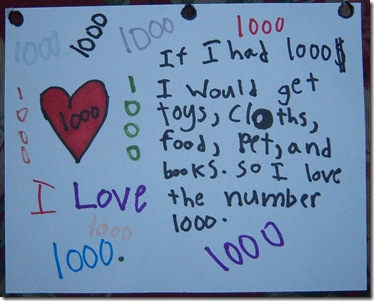 1000 1000 1000 1000
If I had 1000$
I would get
toys, cloths,
food, pet, and
books. so I love
the number
1000.
1000
1000
1000
I Love
1000
1000.
1000